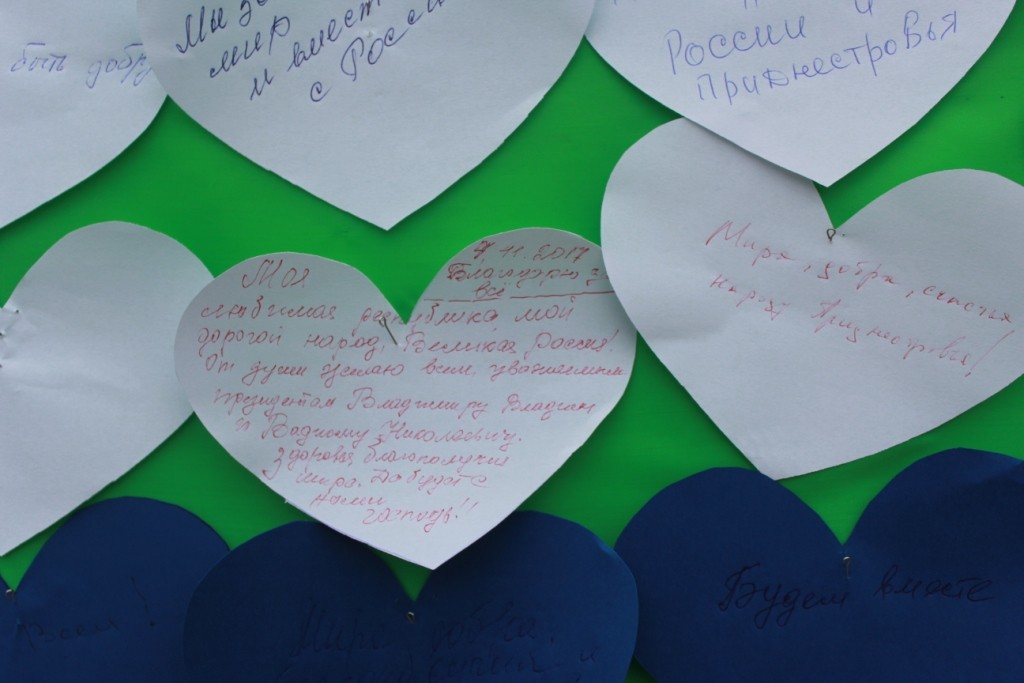 быть добру
Мы за
мир
и вместе
с Россией
России и
Приднестровья
7.11.2017
Благодарю за
всё
Моя
любимая республика, мой
дорогой народ, Великая Россия!
От души желаю всем уважаемым
президентам Владимиру Владим
и Вадиму Николаевичу.
здоровья, благополучия
мира. Да будет с
нами
господь!!
Мира, добра, счастья
народу Приднестровья!
Всем!
Мира добра,
и
Будем вместе